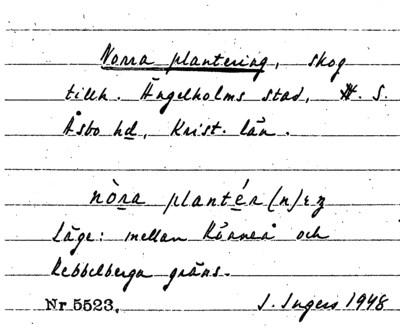 Norra plantering, skog
tillh. Ängelholms stad, H. S.
Åsbo hd, Krist. län.
nòra plantér(n)ɛŋ
Läge: mellan Rönneå och
Rebbelberga gräns.
Nr 5523. I. Ingers 1948